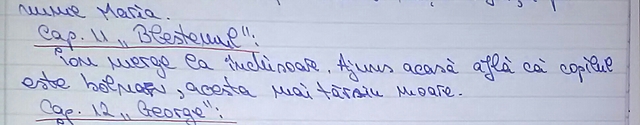 nume Maria.
Cap. 11 „Blestemul":
Ion merge la închisoare. Ajuns acasă află că copilul
este bolnav, acesta mai târziu moare.
Cap. 12 „George":